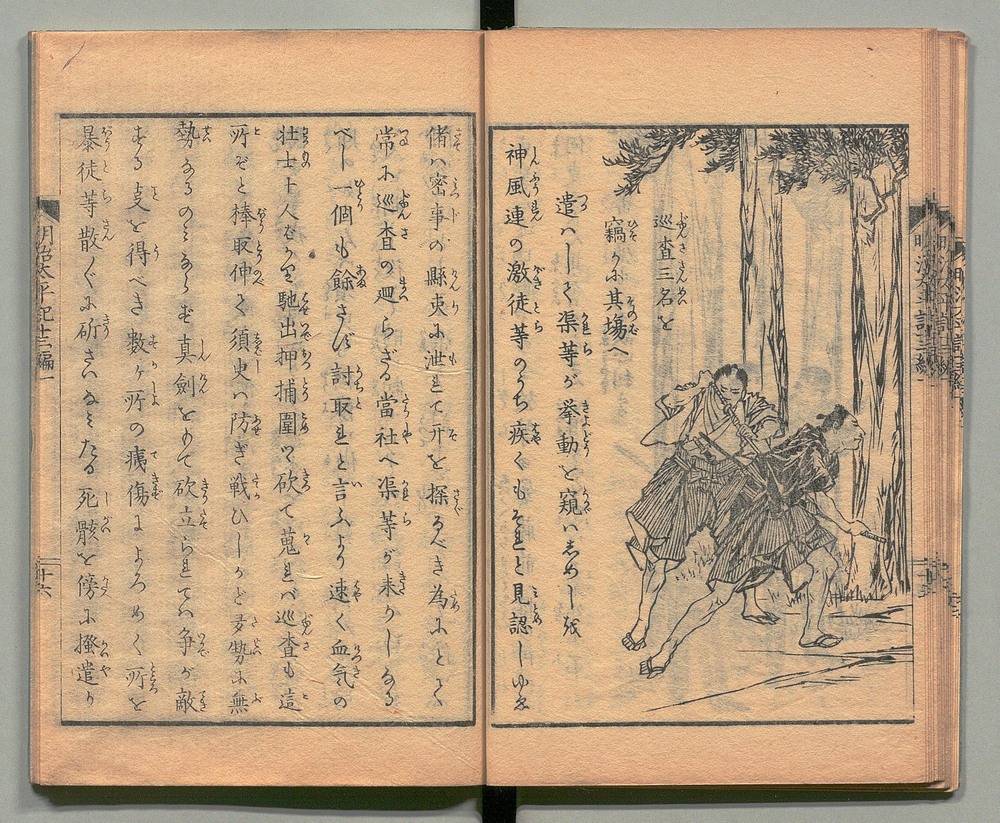 巡査三名を
竊かに其場へ
遣ハして渠等が挙動を窺ハしめしを
神風連の激徒等のうち疾くもそれと見認しゆゑ
偖ハ密事の縣吏に泄れて开を探るべき為にとて
常に巡査の廻らざる當社へ渠等が来りしなる
べし一個も餘さず討取れと言ふより速く血気の
壮士十人ばかり馳出押捕圍て砍て蒐れバ巡査も這
所ぞと棒取伸て須臾ハ防ぎ戦ひしかど多勢に無
勢なるのみならず真劍をもて砍立られてハ争か敵
する支を得べき数ヶ所の痍傷によろめく所を
暴徒等散々に斫さいなみたる死骸を傍に掻遣り
明治太平記十三編一
十六